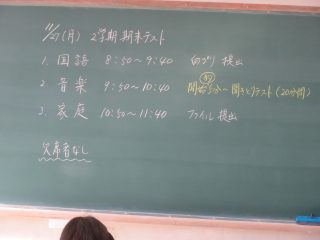 11/27(月) 2学期 期末テスト
1. 国語 8:50〜9:40 白プリ 提出
2. 音楽 9:50〜10:40 開始5分〜聞きとりテスト(20分間)
3. 家庭 10:50〜11:40 ファイル提出
欠席者なし